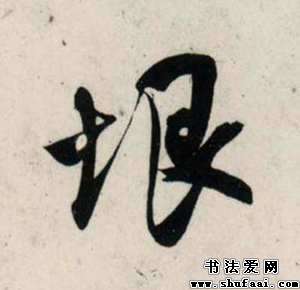 垠
书法爱网
www.shufaai.com